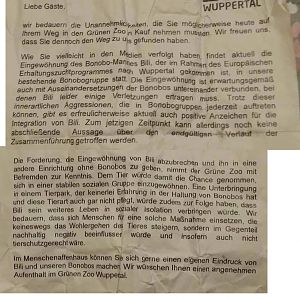 Liebe Gäste,
WUPPERTAL
wir bedauern die Unannehmlichkeiten, die Sie möglicherweise heute auf
Ihrem Weg in den Grünen Zoo in Kauf nehmen mussten. Wir freuen uns,
dass Sie dennoch den Weg zu uns gefunden haben.
Wie Sie vielleicht in den Medien verfolgt haben, findet aktuell die
Eingewöhnung des Bonobo-Mannes Bili, der im Rahmen des Europäischen
Erhaltungszuchtprogrammes nach Wuppertal gekommen ist, in unsere
bestehende Bonobogruppe statt. Die Eingewöhnung ist erwartungsgemäß
auch mit Auseinandersetzungen der Bonobos untereinander verbunden, bei
denen Bili leider einige Verletzungen ertragen muss. Trotz dieser
innerartlichen Aggressionen, die in Bonobogruppen jederzeit auftreten
können, gibt es erfreulicherweise aktuell auch positive Anzeichen für die
Integration von Bili. Zum jetzigen Zeitpunkt kann allerdings noch keine
abschließende Aussage über den endgültigen Verlauf der
Zusammenführung getroffen werden.
Die Forderung, die Eingewöhnung von Bili abzubrechen und ihn in eine
andere Einrichtung ohne Bonobos zu geben, nimmt der Grüne Zoo mit
Befremden zur Kenntnis. Dem Tier würde damit die Chance genommen,
sich in einer stabilen sozialen Gruppe einzugewöhnen. Eine Unterbringung
in einem Tierpark, der keinerlei Erfahrung in der Haltung von Bonobos hat
und diese Tierart auch gar nicht pflegt, würde zudem zur Folge haben, dass
Bili sein weiteres Leben in sozialer Isolation verbringen würde. Wir
bedauern, dass sich Menschen für eine solche Maßnahme einsetzen, die
keineswegs das Wohlergehen des Tieres steigern, sondern im Gegenteil
nachhaltig negativ beeinflussen würde und insofern auch nicht
tierschutzgerecht wäre.
Im Menschenaffenhaus können Sie sich gerne einen eigenen Eindruck von
Bili und unseren Bonobos machen. Wir wünschen Ihnen einen angenehmen
Aufenthalt im Grünen Zoo Wuppertal.